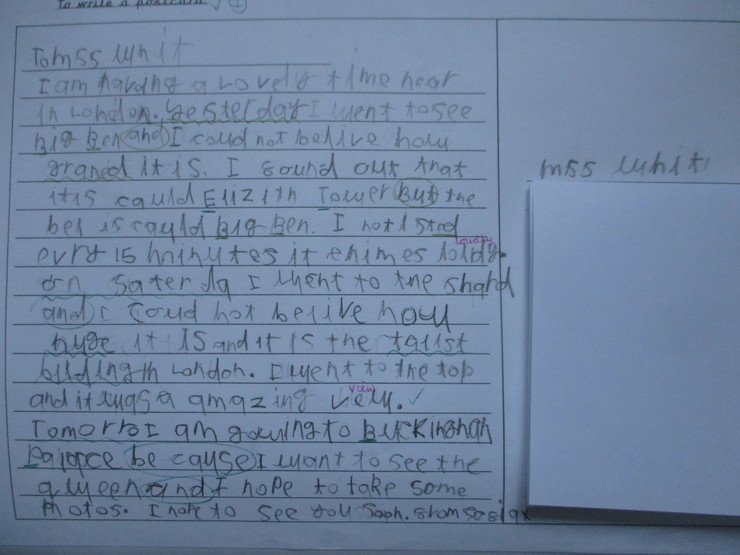 To write a postcard.
To mss whit
I am having a lovely time hear
in London. yesterday I went to see
big Ben and I coud not belive how
graned it is. I found out that
it is cauld Ellzith Tower But the
bel is cauld Big Ben. I notised
evry 15 minutes it chimes loldy.
loudly
on Saterda I went to the shard
and I coud not belive how
huge it is and it is the tallist
bilding in London. I went to the top
and it was a amazing veiw.
view
Tomorro I am gowing to Buckinghan
Palace be cause I want to see the
queen and I hope to take some
Photos. I hope to see you soon. from
mss whit